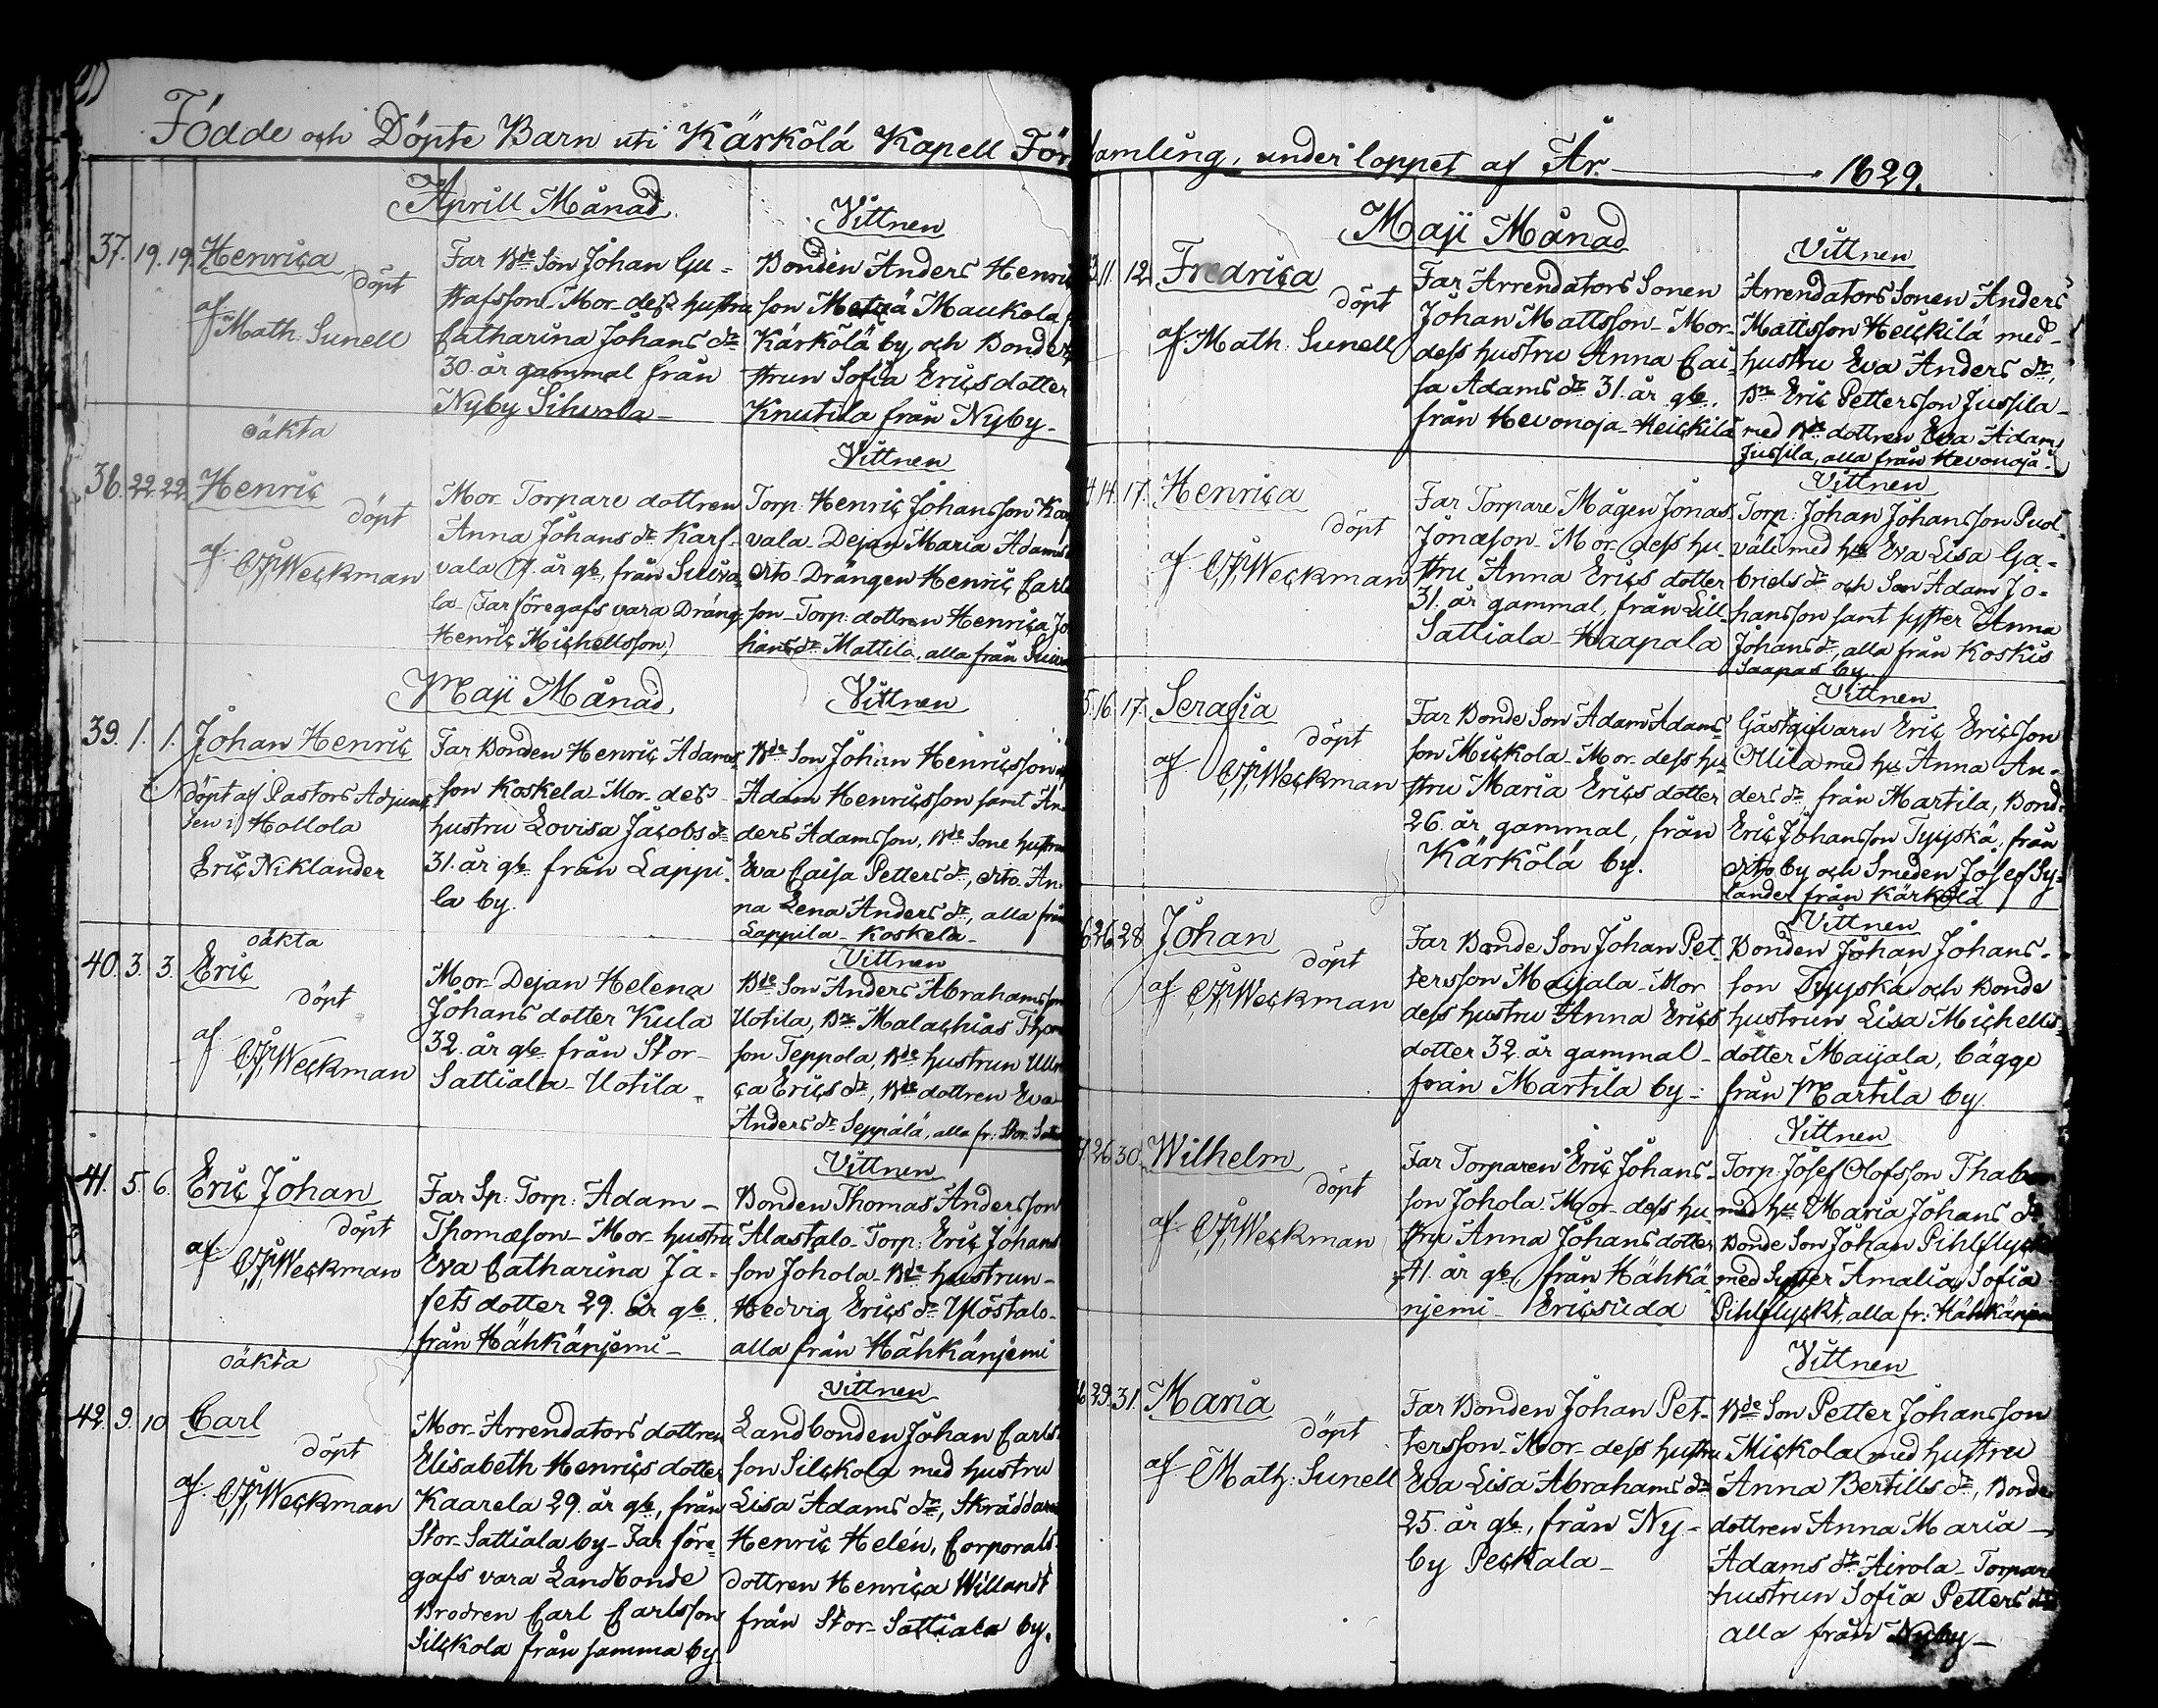 Födde och Döpte Barn uti Kärkölä Kapell För
Aprill Månad
Vittnen
37. 19. 19. Henrica
döpt
af Math. Sunell
Far Bde Son Johan Gu-
stafsson Mor dess hustru
Catharina Johans dr
30. år gammal från
Nyby Sihvola
Bonden Anders Henric
son Maukola
Kärkölä by och Bonde
strun Sofia Erics dotter
Knutila från Nyby
oäkta
Vittnen
22. 22. Henric
döpt
af Weckman
Mor Torpare dottren
Anna Johans dr Karf-
vala år gl. från Suiva
la (Far föregafs vara Dräng
Henric Michellsson)
Torp. Henric Johansson
vala Dejan Maria Adams
dito Drängen Henric Carl
son Torp: dottren Henrica Jo
hans dr Mattila, alla från
Maji Månad
Vittnen
39. 1. 1. Johan Henric
Döpt af Pastors Adjunc
ten i Hollola
Eric Niklander
Far Bonden Henric Adams
son Koskela Mor des
hustru Lovisa Jacobs dr
31. år gl. från Lappi-
la by.
Bde Son Johan Henricsson
Adam Henricsson samt An-
ders Adamsson, Bde Sone hustrun
Eva Caisa Petters dr, dito An-
na Lena Anders dr, alla från
Lappila Koskela
oäkta
Vittnen
40. 3. 3. Eric
döpt
af Weckman
Mor Dejan Helena
Johans dotter Kula
32. år gl. från Stor-
Sattiala Uotila
Bde Son Anders Abrahamsson
Uotila, Bn Malachias Thom
son Teppola, Bde hustrun Ulri
ca Erics dr, Bde dottren Eva
Anders dr Seppälä, alla fr: Stor
Vittnen
41. 5. 6. Eric Johan
döpt
af Weckman
Far Sp: Torp: Adam
Thomæson Mor hustru
Eva Catharina Ja-
fets dotter 29. år gl.
från Hähkänjemi
Bonden Thomas Andersson
Alastalo Torp: Eric Johans
son Johola Bde hustrun
Hedvig Erics dr Ylöstalo
alla från Hähkänjemi
oäkta
Vittnen
42. 9. 10 Carl
döpt
af Weckman
Mor Arrendators dottren
Elisabeth Henrics dotter
Kaarela 29. år gl., från
Stor Sattiala by Far före-
gafs vara Landbonde
Brodren Carl Carlsson
Silckola från samma by
Landbonden Johan Carls
son Silckola med hustru
Lisa Adams dr, Skräddare
Henric Helén, Corporals
dottren Henrica Willandt
från Stor Sattiala by.
samling, under loppet af År. 1829.
Maji Månad
Vittnen
11. 12. Fredrica
döpt
af Math: Sunell
Far Arrendators Sonen
Johan Mattsson Mor
dess hustru Anna Cai-
sa Adams dr 31. år gl.
från Hevonoja Heickilä
Arrendators Sonen Anders
Mattsson Heickilä med
hustru Eva Anders dr,
Bn Eric Pettersson Jussila
med Bde dottren Eva Adams
Jussila, alla från Hevonoja
Vittnen
14. 17. Henrica
döpt
af Weckman
Far Torpare Mågen Jonas
Jonæson Mor dess hu
stru Anna Erics dotter
31. år gammal, från Lill
Sattiala Haapala
Torp: Johan Johansson Puol
väli med hu Eva Lisa Ga-
briels dr och Son Adam Jo-
hansson samt syster Anna
Johans dr, alla från Koskis
Saapas by
Vittnen
16. 17. Serafia
döpt
af Weckman
Far Bonde Son Adam Adams-
son Mickola Mor dess hu-
stru Maria Erics dotter
26. år gammal, från
Kärkölä by.
Gästgifvarn Eric Ericsson
Ollila med hu Anna An-
ders dr från Martila, Bond
Eric Johansson Tyyskä, från
dito by och Smeden Josef Sy-
lander från Kärkölä
Vittnen
26. 28 Johan
döpt
af Weckman
Far Bonde Son Johan Pet-
tersson Maijala Mor
dess hustru Anna Erics
dotter 32. år gammal
från Martila by
Bonden Johan Johans-
son Tyyskä och Bonde
hustrun Lisa Michells-
dotter Maijala, bägge
från Martila by.
Vittnen
26. 30. Wilhelm
döpt
af Weckman
Far Torparen Eric Johans-
son Johola Mor dess hu-
stru Anna Johans dotter
41. år gl. från Hähkä
njemi Ericsuda
Torp: Josef Olofsson
med hu Maria Johans dr
Bonde Son Johan Pihlflyckt
med Syster Amalia Sofia
Pihlflyckt, alla fr: Hähkänjem
Vittnen
29. 31. Maria
döpt
af Math: Sunell
Far Bonden Johan Pet-
tersson Mor dess hustru
Eva Lisa Abrahams dr
25. år gl., från Ny-
by Peckala
Bde Son Petter Johansson
Mickola med hustru
Anna Bertills dr, Bonde
dottren Anna Maria
Adams dr Airola Torpare
hustrun Sofia Petters dr
alla från Nyby